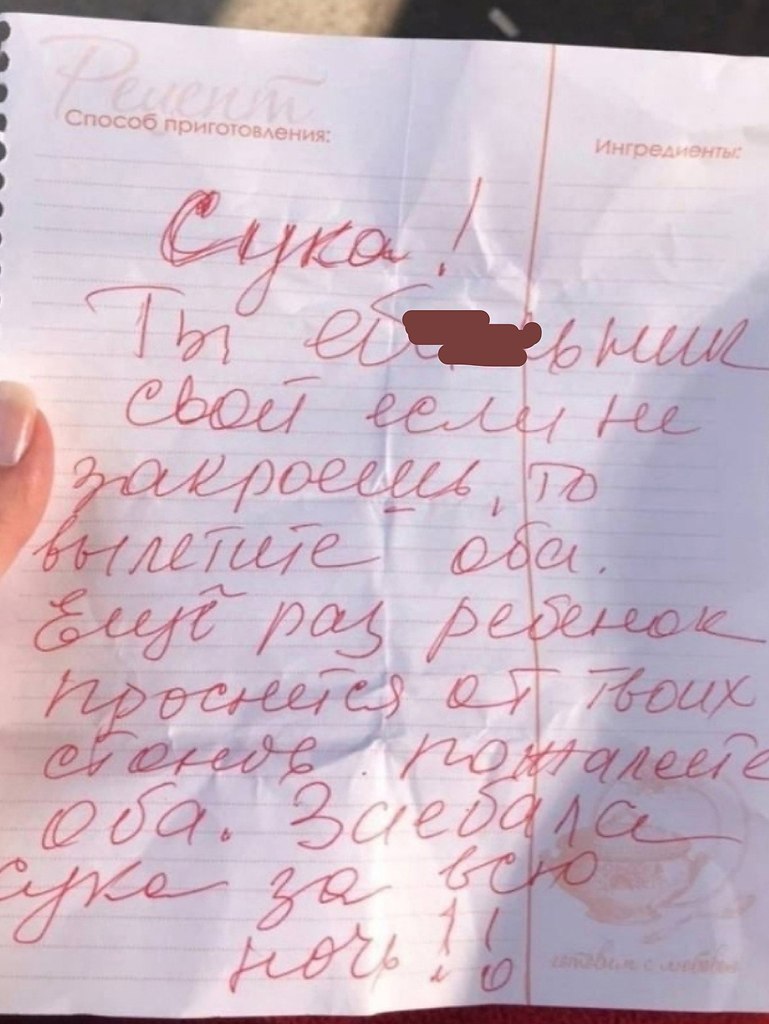 Рецепт
Способ приготовления:
Ингредиенты:
Сука!
Ты еб ьник
свой если не
закроешь, то
вылетите оба.
Ещё раз ребенок
проснется от твоих
стонов пожалеете
оба. Заебала
сука за всю
ночь!!
готовим с любовью